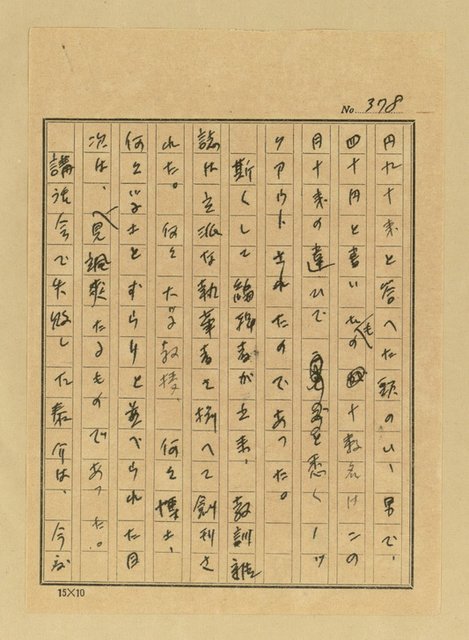 円九十銭と答へた頭のいゝ男で、
四十円と書いたのも十数名はこの
十銭の違ひで を悉くノッ
クアウトされたのであつた。
斯くして編輯者が出来、教訓雑
誌は立派な執筆者を揃へて創刊さ
れた。何々大学教授、何々博士、
何々学士とずらりと並べられた目
次は、一見颯爽たるものであつた。
講会で失敗した泰介は、今度
No. 378
15×10